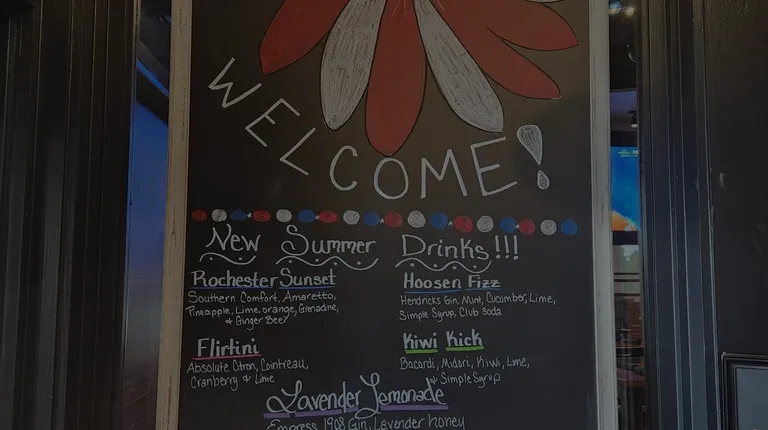 WELCOME!
New Summer Drinks!!!
Rochester Sunset
Southern Comfort, Amaretto,
Pineapple, Lime, orange, Grenadine,
& Ginger Beer
Hoosen Fizz
Hendricks Gin, Mint, Cucumber, Lime,
Simple Syrup, Club Soda
Flirtini
Absolute Citron, Cointreau,
Cranberry & Lime
Kiwi Kick
Bacardi, Midori, Kiwi, Lime,
& Simple Syrup
Lavender Lemonade
Empress 1908 Gin, Lavender honey